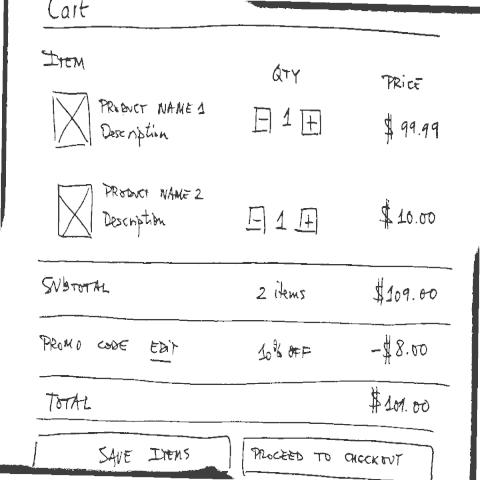 Cart
ITEM QTY PRICE
PRODUCT NAME 1
Description
- 1 +
$99.99
PRODUCT NAME 2
Description
- 1 +
$10.00
SUBTOTAL 2 items $109.00
PROMO CODE EDIT 10% OFF -$8.00
TOTAL $101.00
SAVE ITEMS PROCEED TO CHECKOUT